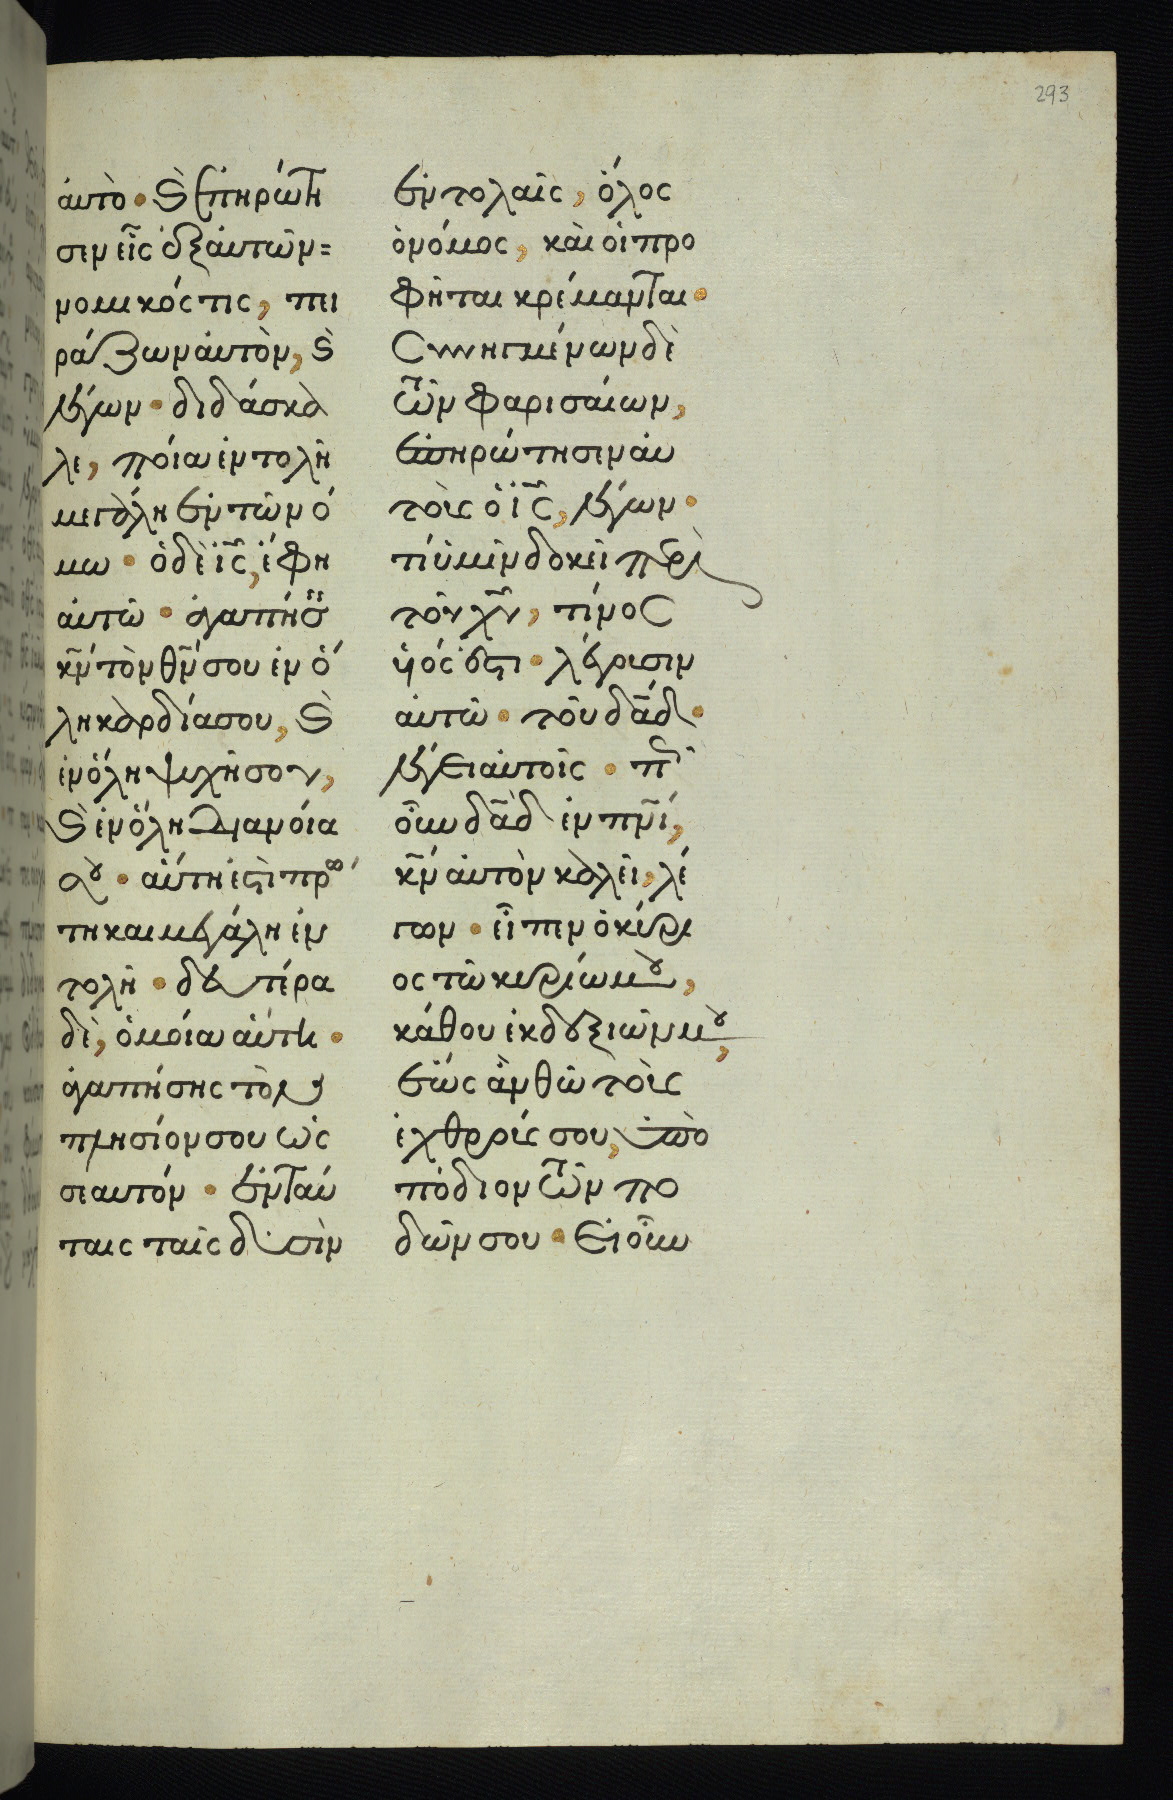 293
αυτὸ· καὶ ἐπηρώτη
σεν εἷς ἐξ αὐτῶν
νομικός τις, πει
ράζων αὐτὸν, καὶ
λέγων· διδάσκα
λε, ποία ἐντολὴ
μεγάλη ἐν τῶ νό
μω· ὁ δὲ ις, ἔφη
αὐτῶ· ἀγαπήσεις
κν τὸν θν σου ἐν ὅ
λη καρδία σου, καὶ
ἐν ὅλη ψυχῆ σου,
καὶ ἐν ὅλη διανοία
σου· αὕτη ἐστὶ πρώ
τη και μεγάλη ἐν
τολὴ· δευτέρα
δὲ, ὁμοία αὐτῆ·
ἀγαπήσης τὸν
πλησίον σου ὡς
σεαυτόν· ἐν ταύ
ταις ταῖς δυσὶν
ἐντολαῖς, ὅλος
ὁ νόμος, καὶ οἱ προ
φῆται κρέμανται·
Συνηγμένων δὲ
τῶν φαρισαίων,
ἐπηρώτησεν αὐ
τοὺς ὁ ις, λέγων·
τί ὑμῖν δοκεῖ περὶ
τοῦ χυ, τίνος
υἱός ἐστι· λέγουσιν
αὐτῶ· τοῦ δαδ·
λέγει αὐτοῖς· πῶς
οὖν δαδ ἐν πνι,
κν αὐτὸν καλεῖ, λέ
γων· εἶπεν ὁ κύρι
ος τῶ κυρίω μου,
κάθου ἐκ δεξιῶν μου,
ἕως ἂν θῶ τοὺς
ἐχθρούς σου, ὑπο
πόδιον τῶν πο
δῶν σου· Εἰ οὖν